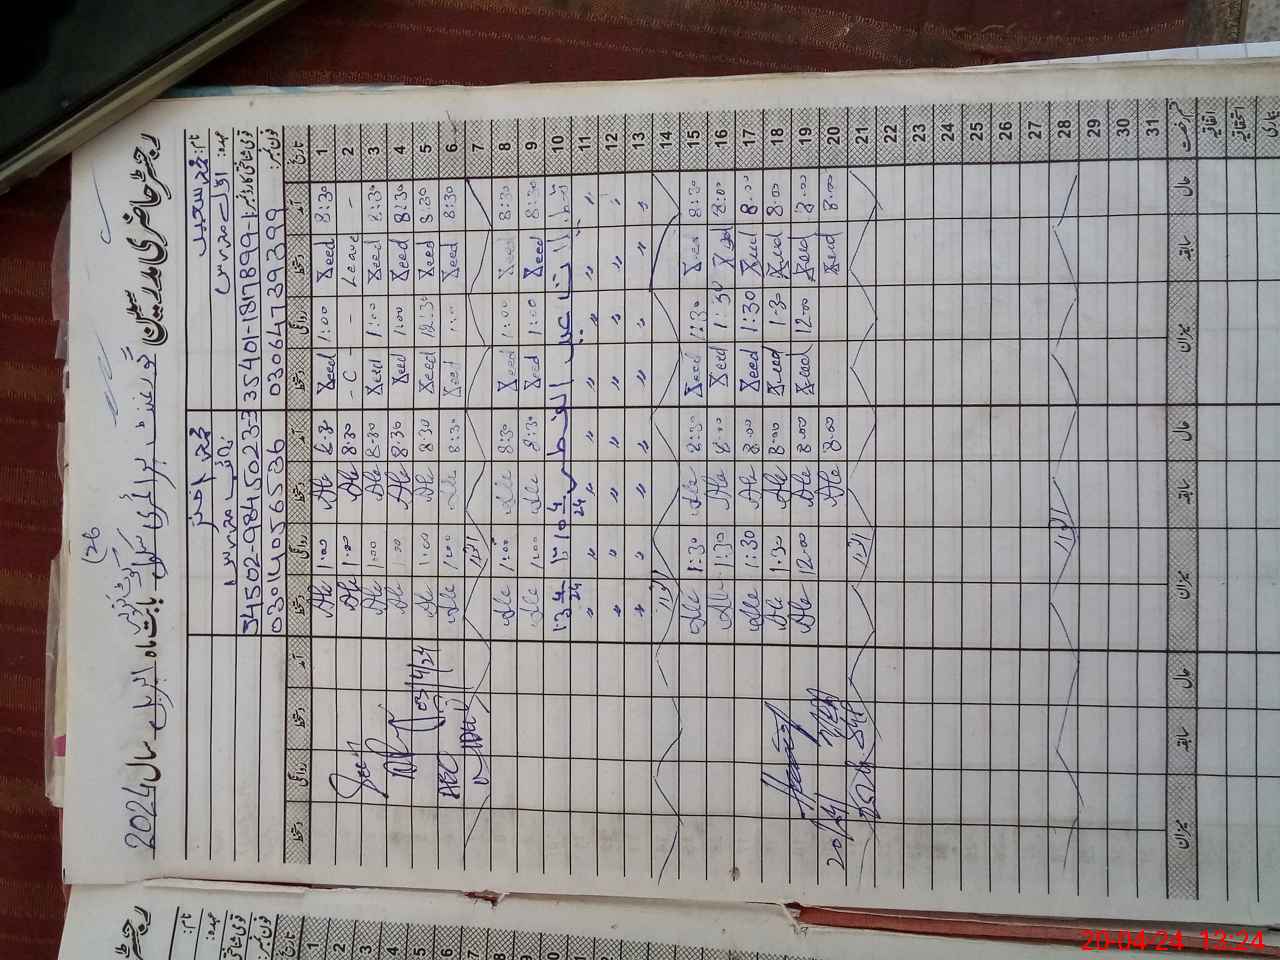 رجسٹر حاضری مدرسین گورنمنٹ پرائمری سکول بابت ماہ اپریل سال 2024
نام: محمد سعید محمد اختر
عہدہ: اول مدرس نائب مدرس
قومی شناختی کارڈ نمبر: 35401-1817899-1 34502-9845023-3
فون نمبر: 03064739399 03014056536
تاریخ آمد دستخط روانگی دستخط آمد دستخط روانگی دستخط آمد دستخط روانگی دستخط
1 8:30 Xeed 1:00 Xeed 8:30 Ale 1:00 Ale
2 - Leave - - C - 8:30 Ale 1:00 Ale
3 8:30 Xeed 1:00 Xeed 8:30 Ale 1:00 Ale
4 8:30 Xeed 1:00 Xeed 8:30 Ale 1:00 Ale
5 8:30 Xeed 12:30 Xeed 8:30 Ale 1:00 Ale
03/4/24
6 8:30 Xeed 1:00 Xeed 8:30 Ale 1:00 Ale
7 اتوار
8 8:30 Xeed 1:00 Xeed 8:30 Ale 1:00 Ale
9 8:30 Xeed 1:00 Xeed 8:30 Ale 1:00 Ale
10 عید الفطر
11 〃 〃 〃 〃 〃 〃 〃 〃
12 〃 〃 〃 〃 〃 〃 〃
13 〃 〃 〃 〃 〃 〃 〃 〃
14 اتوار
15 8:30 Xeed 1:30 Xeed 8:30 Ale 1:30 Ale
16 8:00 Xeed 1:30 Xeed 8:00 Ale 1:30 Ale
17 8:00 Xeed 1:30 Xeed 8:00 Ale 1:30 Ale
18 8:00 Xeed 1:30 Xeed 8:00 Ale 1:30 Ale
19 8:00 Xeed 12:00 Xeed 8:00 Ale 12:00 Ale
20 8:00 Xeed 8:00 Ale
20/4/24
21 اتوار
22
23
24
25
26
27
28 اتوار
29
30
31
قسم رخصت حال سابقہ میزان حال سابقہ میزان حال سابقہ میزان
اتفاقیہ
استحقاقیہ
بیماری
رجسٹر
نام:
عہدہ:
قومی شناختی
فون نمبر:
تاریخ
1
2
3
4
5
6
7
8
9
10
11
12
13
20-04-24 13:24